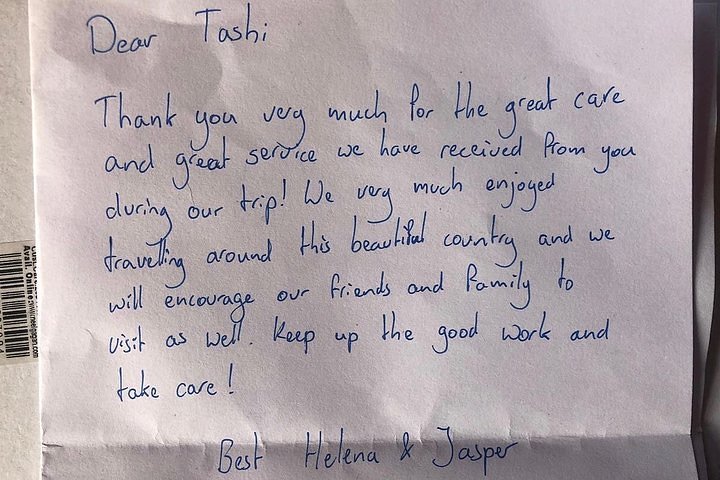 Dear Tashi
Thank you very much for the great care
and great service we have received from you
during our trip! We very much enjoyed
travelling around this beautiful country and we
will encourage our friends and family to
visit as well. Keep up the good work and
take care!
Best Helena & Jasper
Avail. Online